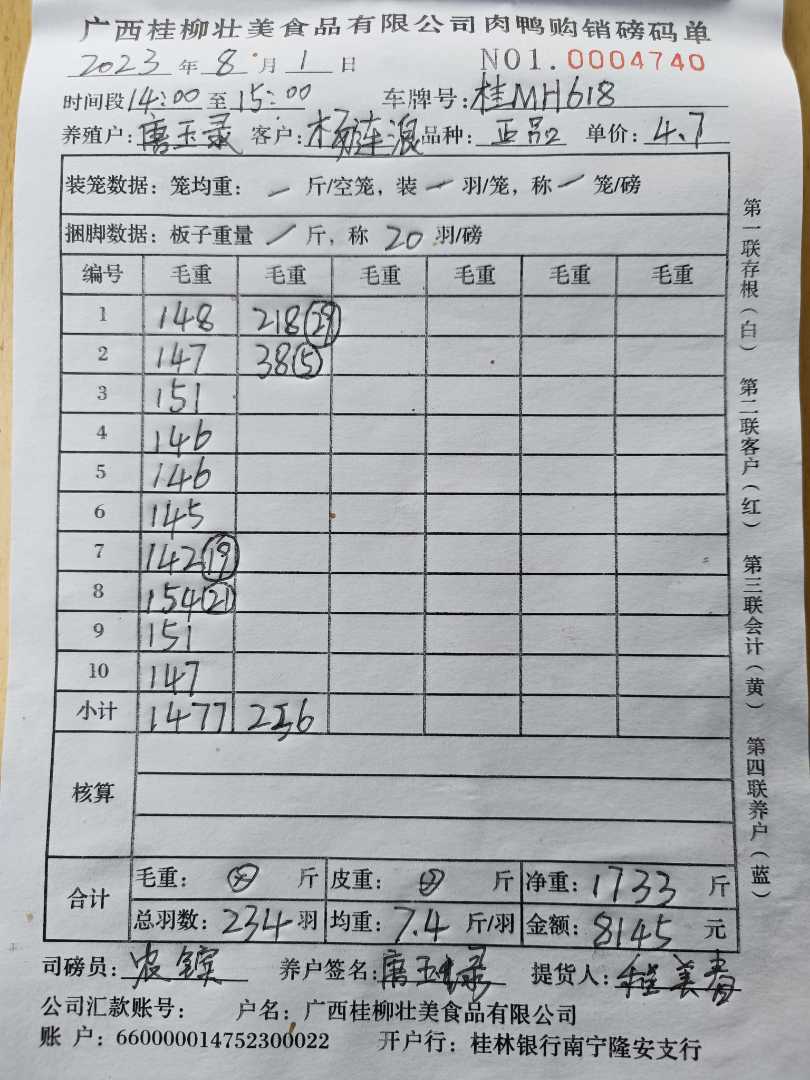 广西桂柳壮美食品有限公司肉鸭购销磅码单
2023 年 8 月 1 日 NO1. 0004740
时间段 14:00 至 15:00 车牌号: 桂MH618
养殖户: 唐玉录 客户: 杨连浪 品种: 正品2 单价: 4.7
装笼数据: 笼均重: / 斤/空笼, 装 / 羽/笼, 称 / 笼/磅
捆脚数据: 板子重量 / 斤, 称 20 羽/磅
编号 毛重 毛重 毛重 毛重 毛重 毛重
1 148 218(29)
2 147 38(5)
3 151
4 146
5 146
6 145
7 142(19)
8 154(21)
9 151
10 147
小计 1477 256
核算
合计
毛重: ⊗ 斤 皮重: 斤 净重: 1733 斤
总羽数: 234 羽 均重: 7.4 斤/羽 金额: 8145 元
司磅员: 农 养户签名: 唐玉录 提货人: 程美青
公司汇款账号: 户名: 广西桂柳壮美食品有限公司
账 户: 660000014752300022 开户行: 桂林银行南宁隆安支行
第一联存根(白) 第二联客户(红) 第三联会计(黄) 第四联养户(蓝)